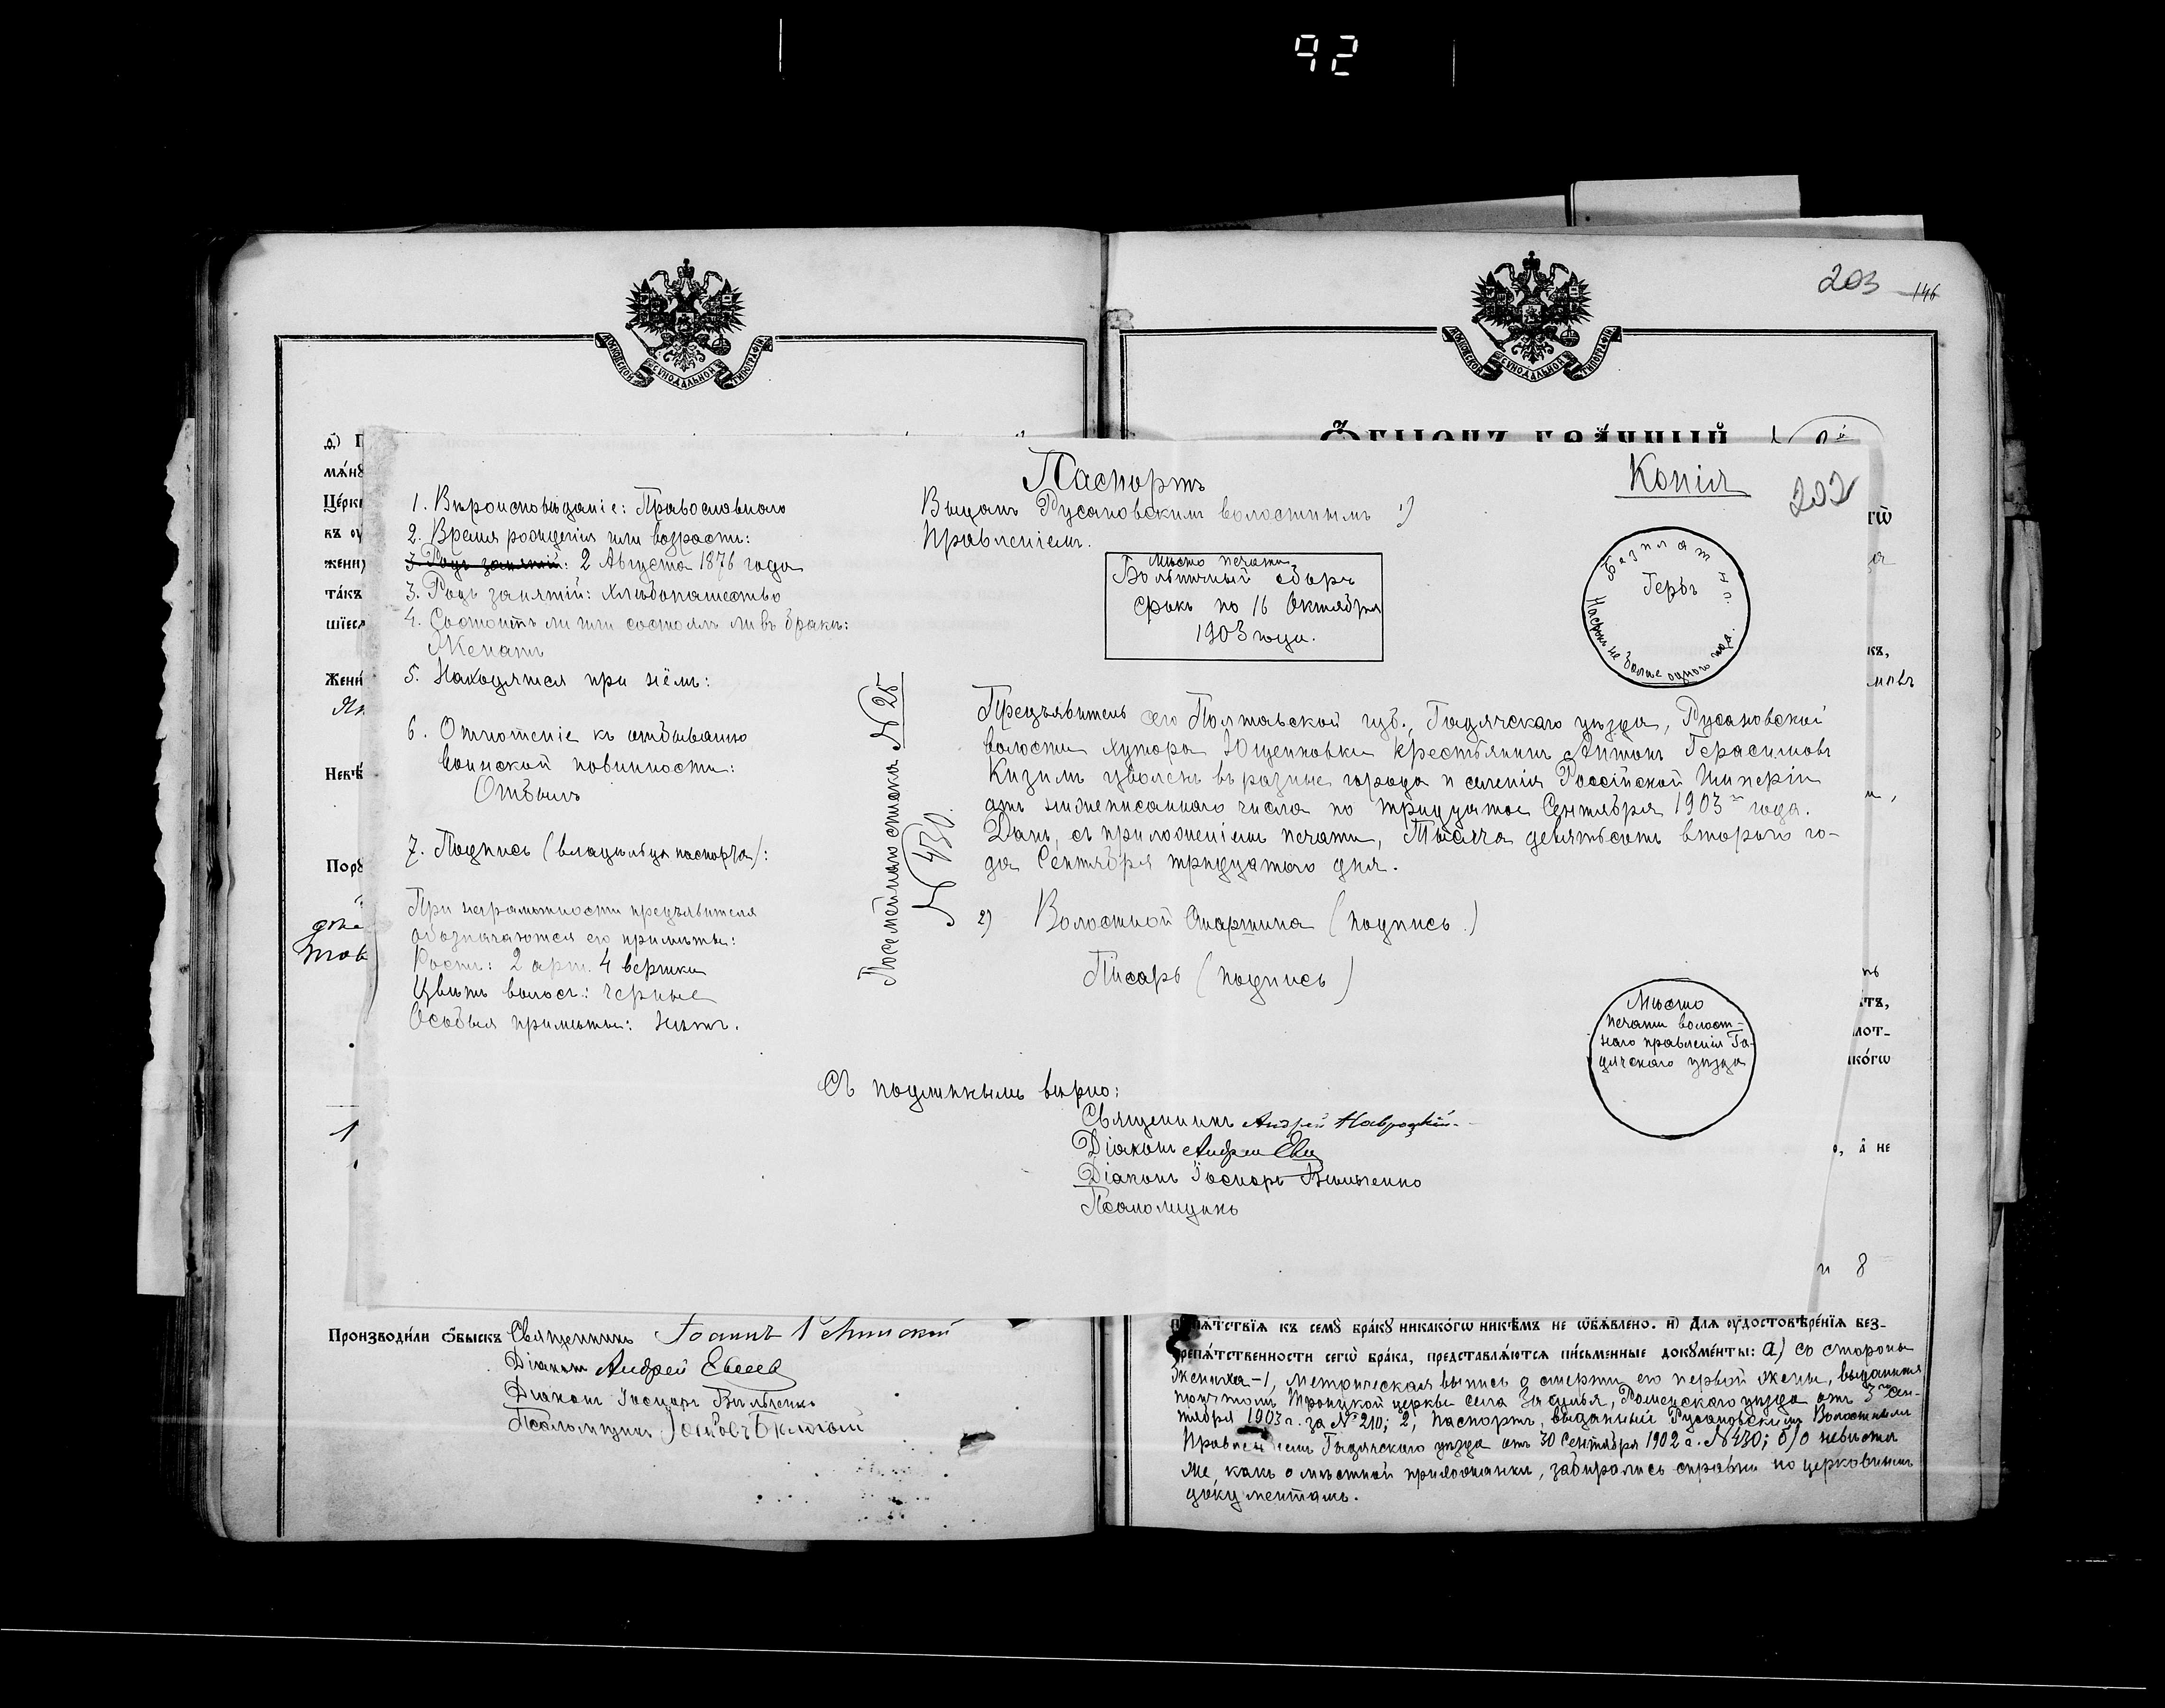 92
203 146
МОСКОВСКОЙ СѴНОДАЛЬНОЙ ТИПОГРАФІИ
МОСКОВСКОЙ СѴНОДАЛЬНОЙ ТИПОГРАФІИ
Копія
202
1. Вѣроисповѣданіе: Православнаго
2. Время рожденія или возрастъ:
3. Родъ занятій: 2 Августа 1876 года
3. Родъ занятій: хлѣбопашество
4. Состоитъ ли или состоялъ ли въ бракѣ:
Женатъ
5. Находятся при нёмъ:
6. Отношеніе къ отбыванію
воинской повинности:
Отбылъ
7. Подпись (владѣльца паспорта):
При неграмотности предъявителя
обозначаются его примѣты:
Ростъ: 2 арш. 4 вершка
Цвѣтъ волосъ: черные
Особыя примѣты: нѣтъ.
Посемейнаго списка N 25
N 430.
Паспортъ
Выданъ Русановскимъ волостнымъ 1)
Правленіемъ.
Мѣсто печати
Больничный сборъ
срокъ по 16 Октября
1903 года.
Безплатный.
Гербъ
На срокъ не более одного года.
Предъявитель сего Полтавской губ., Гадячскаго уѣзда, Русановской
волости хутора Ющенковки крестьянинъ Антонъ Герасимовъ
Кизимъ уволенъ въ разные города и селенія Россійской Имперіи
отъ нижеписаннаго числа по тридцатое Сентября 1903 года.
Данъ, съ приложеніемъ печати, Тысяча девятьсотъ второго го-
да Сентября тридцатого дня.
2) Волостной Старшина (подпись)
Писарь (подпись)
Мѣсто
печати волост-
ного правленія Га-
дячскаго уѣзда
Съ подлиннымъ вѣрно:
Священникъ Андрей Навроцкій
Діаконъ Андрей
Діаконъ Іосифъ
Псаломщикъ
Произвели обыскъ Священникъ Іоаннъ
Діаконъ Андрей
Діаконъ
Псаломщикъ
препѧтствїѧ къ семꙋ бракꙋ никакогѡ никѣмъ не ѡб̾ѧвлено. и҃) Для оудостовѣренїѧ без-
препѧтственности сегѡ брака, представлѧютсѧ письменные докꙋменты: а) со стороны
жениха-1, Метрическая выпись о смерти его первой жены, выданная
причтомъ Троицкой церкви села Засулья, Роменскаго уѣзда отъ 3 Сен-
тября 1903 г. за № 210; 2, Паспортъ, выданный Русановскимъ Волостнымъ
Правленіемъ Гадячскаго уѣзда отъ 30 Сентября 1902 г. N 430; б) о невѣстѣ
же, какъ о мѣстной прихожанкѣ, забирались справки по церковнымъ
документамъ.